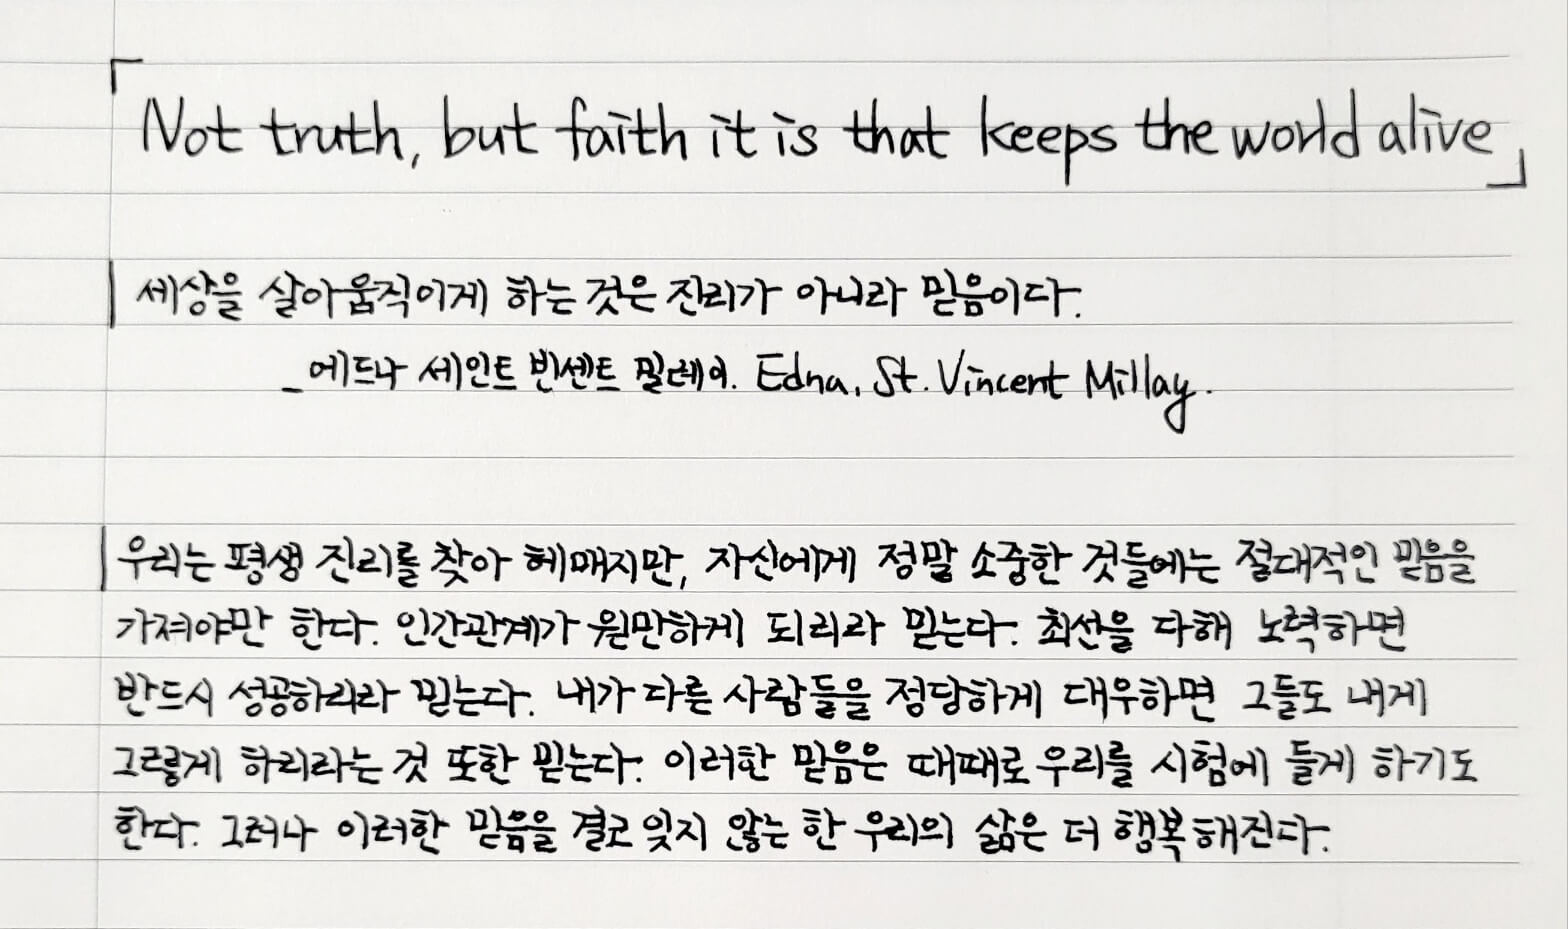 「Not truth, but faith it is that keeps the world alive」
세상을 살아움직이게 하는 것은 진리가 아니라 믿음이다.
_에드나 세인트 빈센트 밀레이. Edna, St. Vincent Millay.
우리는 평생 진리를 찾아 헤매지만, 자신에게 정말 소중한 것들에는 절대적인 믿음을
가져야만 한다. 인간관계가 원만하게 되리라 믿는다. 최선을 다해 노력하면
반드시 성공하리라 믿는다. 내가 다른 사람들을 정당하게 대우하면 그들도 내게
그렇게 하리라는 것 또한 믿는다. 이러한 믿음은 때때로 우리를 시험에 들게 하기도
한다. 그러나 이러한 믿음을 결코 잊지 않는 한 우리의 삶은 더 행복해진다.